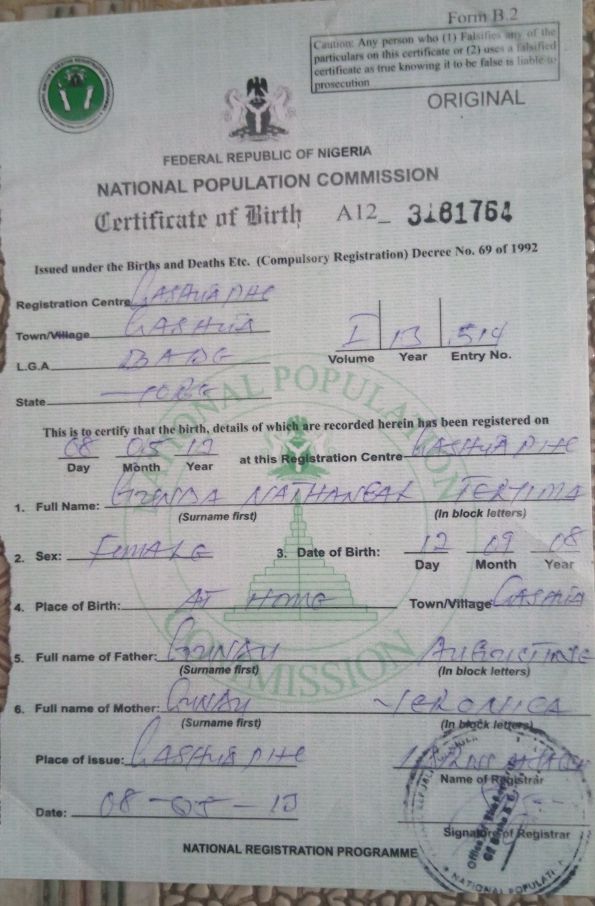 Form B.2
Caution: Any person who (1) Falsifies any of the
particulars on this certificate or (2) uses a falsified
certificate as true knowing it to be false is liable to
prosecution
ORIGINAL
FEDERAL REPUBLIC OF NIGERIA
NATIONAL POPULATION COMMISSION
Certificate of Birth A12_ 3181764
Issued under the Births and Deaths Etc. (Compulsory Registration) Decree No. 69 of 1992
Registration Centre GASHUA PHC
Town/Village GASHUA
I 13 514
L.G.A BADE
Volume Year Entry No.
State YOBE
This is to certify that the birth, details of which are recorded herein has been registered on
08 05 at this Registration Centre GASHUA PHC
Day Month Year
1. Full Name: TERTIMA
(Surname first) (In block letters)
2. Sex: FEMALE 3. Date of Birth: 12 09 08
Day Month Year
4. Place of Birth: AT HOME Town/Village GASHUA
5. Full name of Father: AUGUSTINE
(Surname first) (In block letters)
6. Full name of Mother: VERONICA
(Surname first) (In block letters)
Place of issue: GASHUA PHC
Name of Registrar
Date: 08-05-13
Signature of Registrar
NATIONAL REGISTRATION PROGRAMME
NATIONAL POPULATION COMMISSION